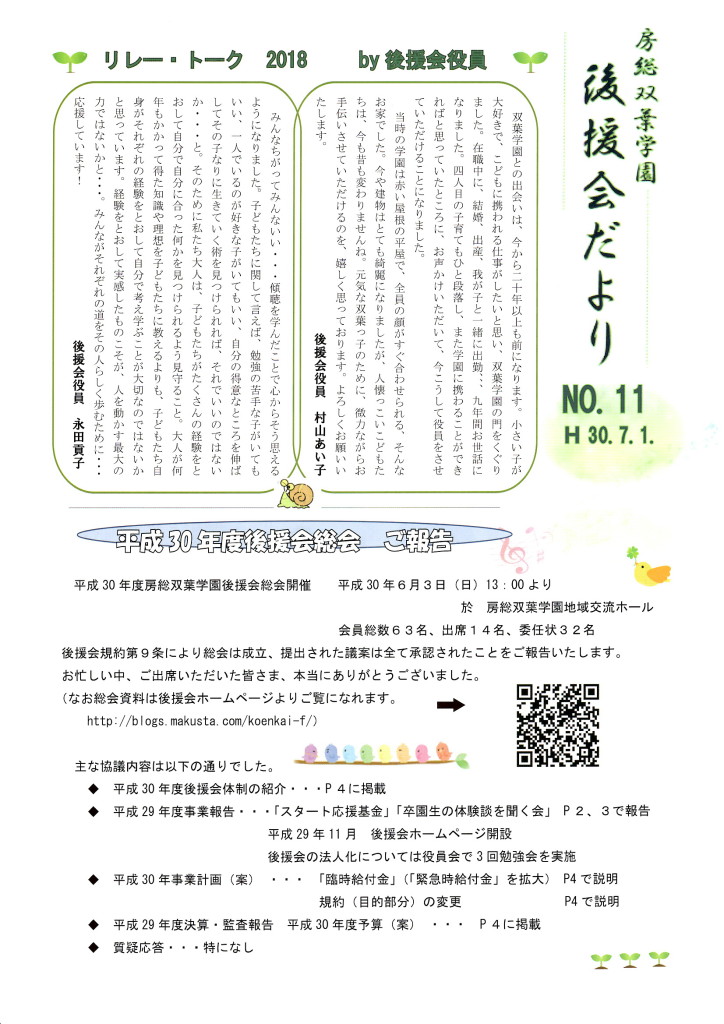 房総双葉学園
後援会だより
NO.11
H 30.7.1.
リレー・トーク　2018　by 後援会役員
双葉学園との出会いは、今から二十年以上も前になります。小さい子が
大好きで、こどもに携われる仕事がしたいと思い、双葉学園の門をくぐり
ました。在職中に、結婚、出産、我が子と一緒に出勤、、、九年間お世話に
なりました。四人目の子育てもひと段落し、また学園に携わることができ
ればと思っていたところに、お声かけいただいて、今こうして役員をさせ
ていただけることになりました。
当時の学園は赤い屋根の平屋で、全員の顔がすぐ合わせられる、そんな
お家でした。今や建物はとても綺麗になりましたが、人懐っこいこどもた
ちは、今も昔も変わりませんね。元気な双葉っ子のために、微力ながらお
手伝いさせていただけるのを、嬉しく思っております。よろしくお願いい
たします。
後援会役員　村山あい子
みんなちがってみんないい・・・・傾聴を学んだことで心からそう思える
ようになりました。子どもたちに関して言えば、勉強の苦手な子がいても
いい、一人でいるのが好きな子がいてもいい、自分の得意なところを伸ば
してその子なりに生きていく術を見つけられれば、それでいいのではない
か・・・と。そのために私たち大人は、子どもたちがたくさんの経験をと
おして自分で自分に合った何かを見つけられるよう見守ること。大人が何
年もかかって得た知識や理想を子どもたちに教えるよりも、子どもたち自
身がそれぞれの経験をとおして自分で考え学ぶことが大切なのではないか
と思っています。経験をとおして実感したものこそが、人を動かす最大の
力ではないかと・・・。みんながそれぞれの道をその人らしく歩むために・・・
応援しています！
後援会役員　永田貢子
平成 30 年度後援会総会　ご報告
平成 30 年度房総双葉学園後援会総会開催　平成 30 年６月３日（日）13：00 より
於　房総双葉学園地域交流ホール
会員総数６３名、出席１４名、委任状３２名
後援会規約第９条により総会は成立、提出された議案は全て承認されたことをご報告いたします。
お忙しい中、ご出席いただいた皆さま、本当にありがとうございました。
（なお総会資料は後援会ホームページよりご覧になれます。
http://blogs.makusta.com/koenkai-f/）
主な協議内容は以下の通りでした。
◆　平成 30 年度後援会体制の紹介・・・P４に掲載
◆　平成 29 年度事業報告・・・「スタート応援基金」「卒園生の体験談を聞く会」　P２、３で報告
平成 29 年 11 月　後援会ホームページ開設
後援会の法人化については役員会で 3 回勉強会を実施
◆　平成 30 年事業計画（案）　・・・　「臨時給付金」（「緊急時給付金」を拡大）　P4 で説明
規約（目的部分）の変更　P4 で説明
◆　平成 29 年度決算・監査報告　平成 30 年度予算（案）　・・・　P４に掲載
◆　質疑応答・・・特になし